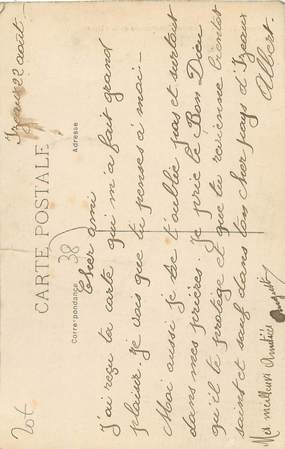 Izeaux 22 août
CARTE POSTALE
Correspondance
Adresse
38
Cher ami
J'ai reçu ta carte qui m'a fait grand
plaisir. Je vois que tu penses à moi –
Moi aussi je ne t'oublie pas et surtout
dans mes prières. Je prie le Bon Dieu
qu'il te protège et que tu revienne bientôt
saint et sauf dans ton cher pays d'Izeaux
Albert.
Mes meilleures Amitiés
20f